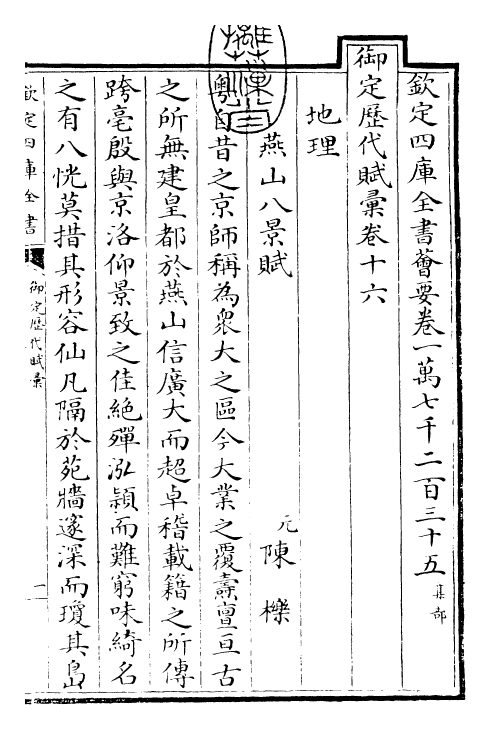 欽定四庫全書薈要卷一萬七千二百三十五 集部
御定歷代賦彙卷十六
地理
燕山八景賦
元 陳櫟
粵自昔之京師稱為衆大之區今大業之覆燾亶亘古
之所無建皇都於燕山信廣大而超卓稽載籍之所傳
跨亳殷與京洛仰景致之佳絶殫泓穎而難窮味綺名
之有八恍莫措其形容仙凡隔於苑牆邃深而瓊其島
欽定四庫全書
御定歷代賦彙
一